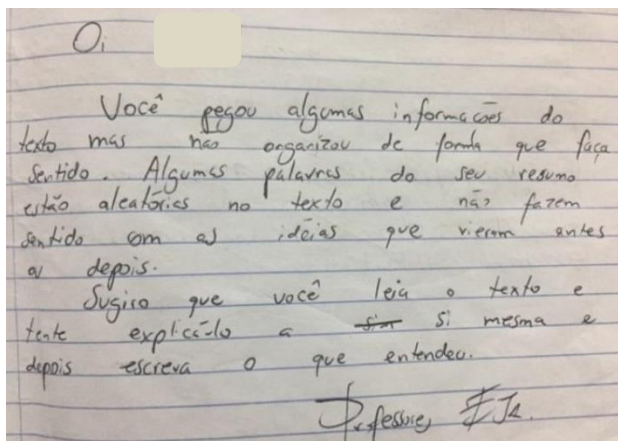 Oi
Você pegou algumas informações do
texto mas não organizou de forma que faça
sentido. Algumas palavras do seu resumo
estão aleatórias no texto e não fazem
sentido com as idéias que vieram antes
ou depois.
Sugiro que você leia o texto e
tente explicá-lo a si mesma e
depois escreva o que entendeu.